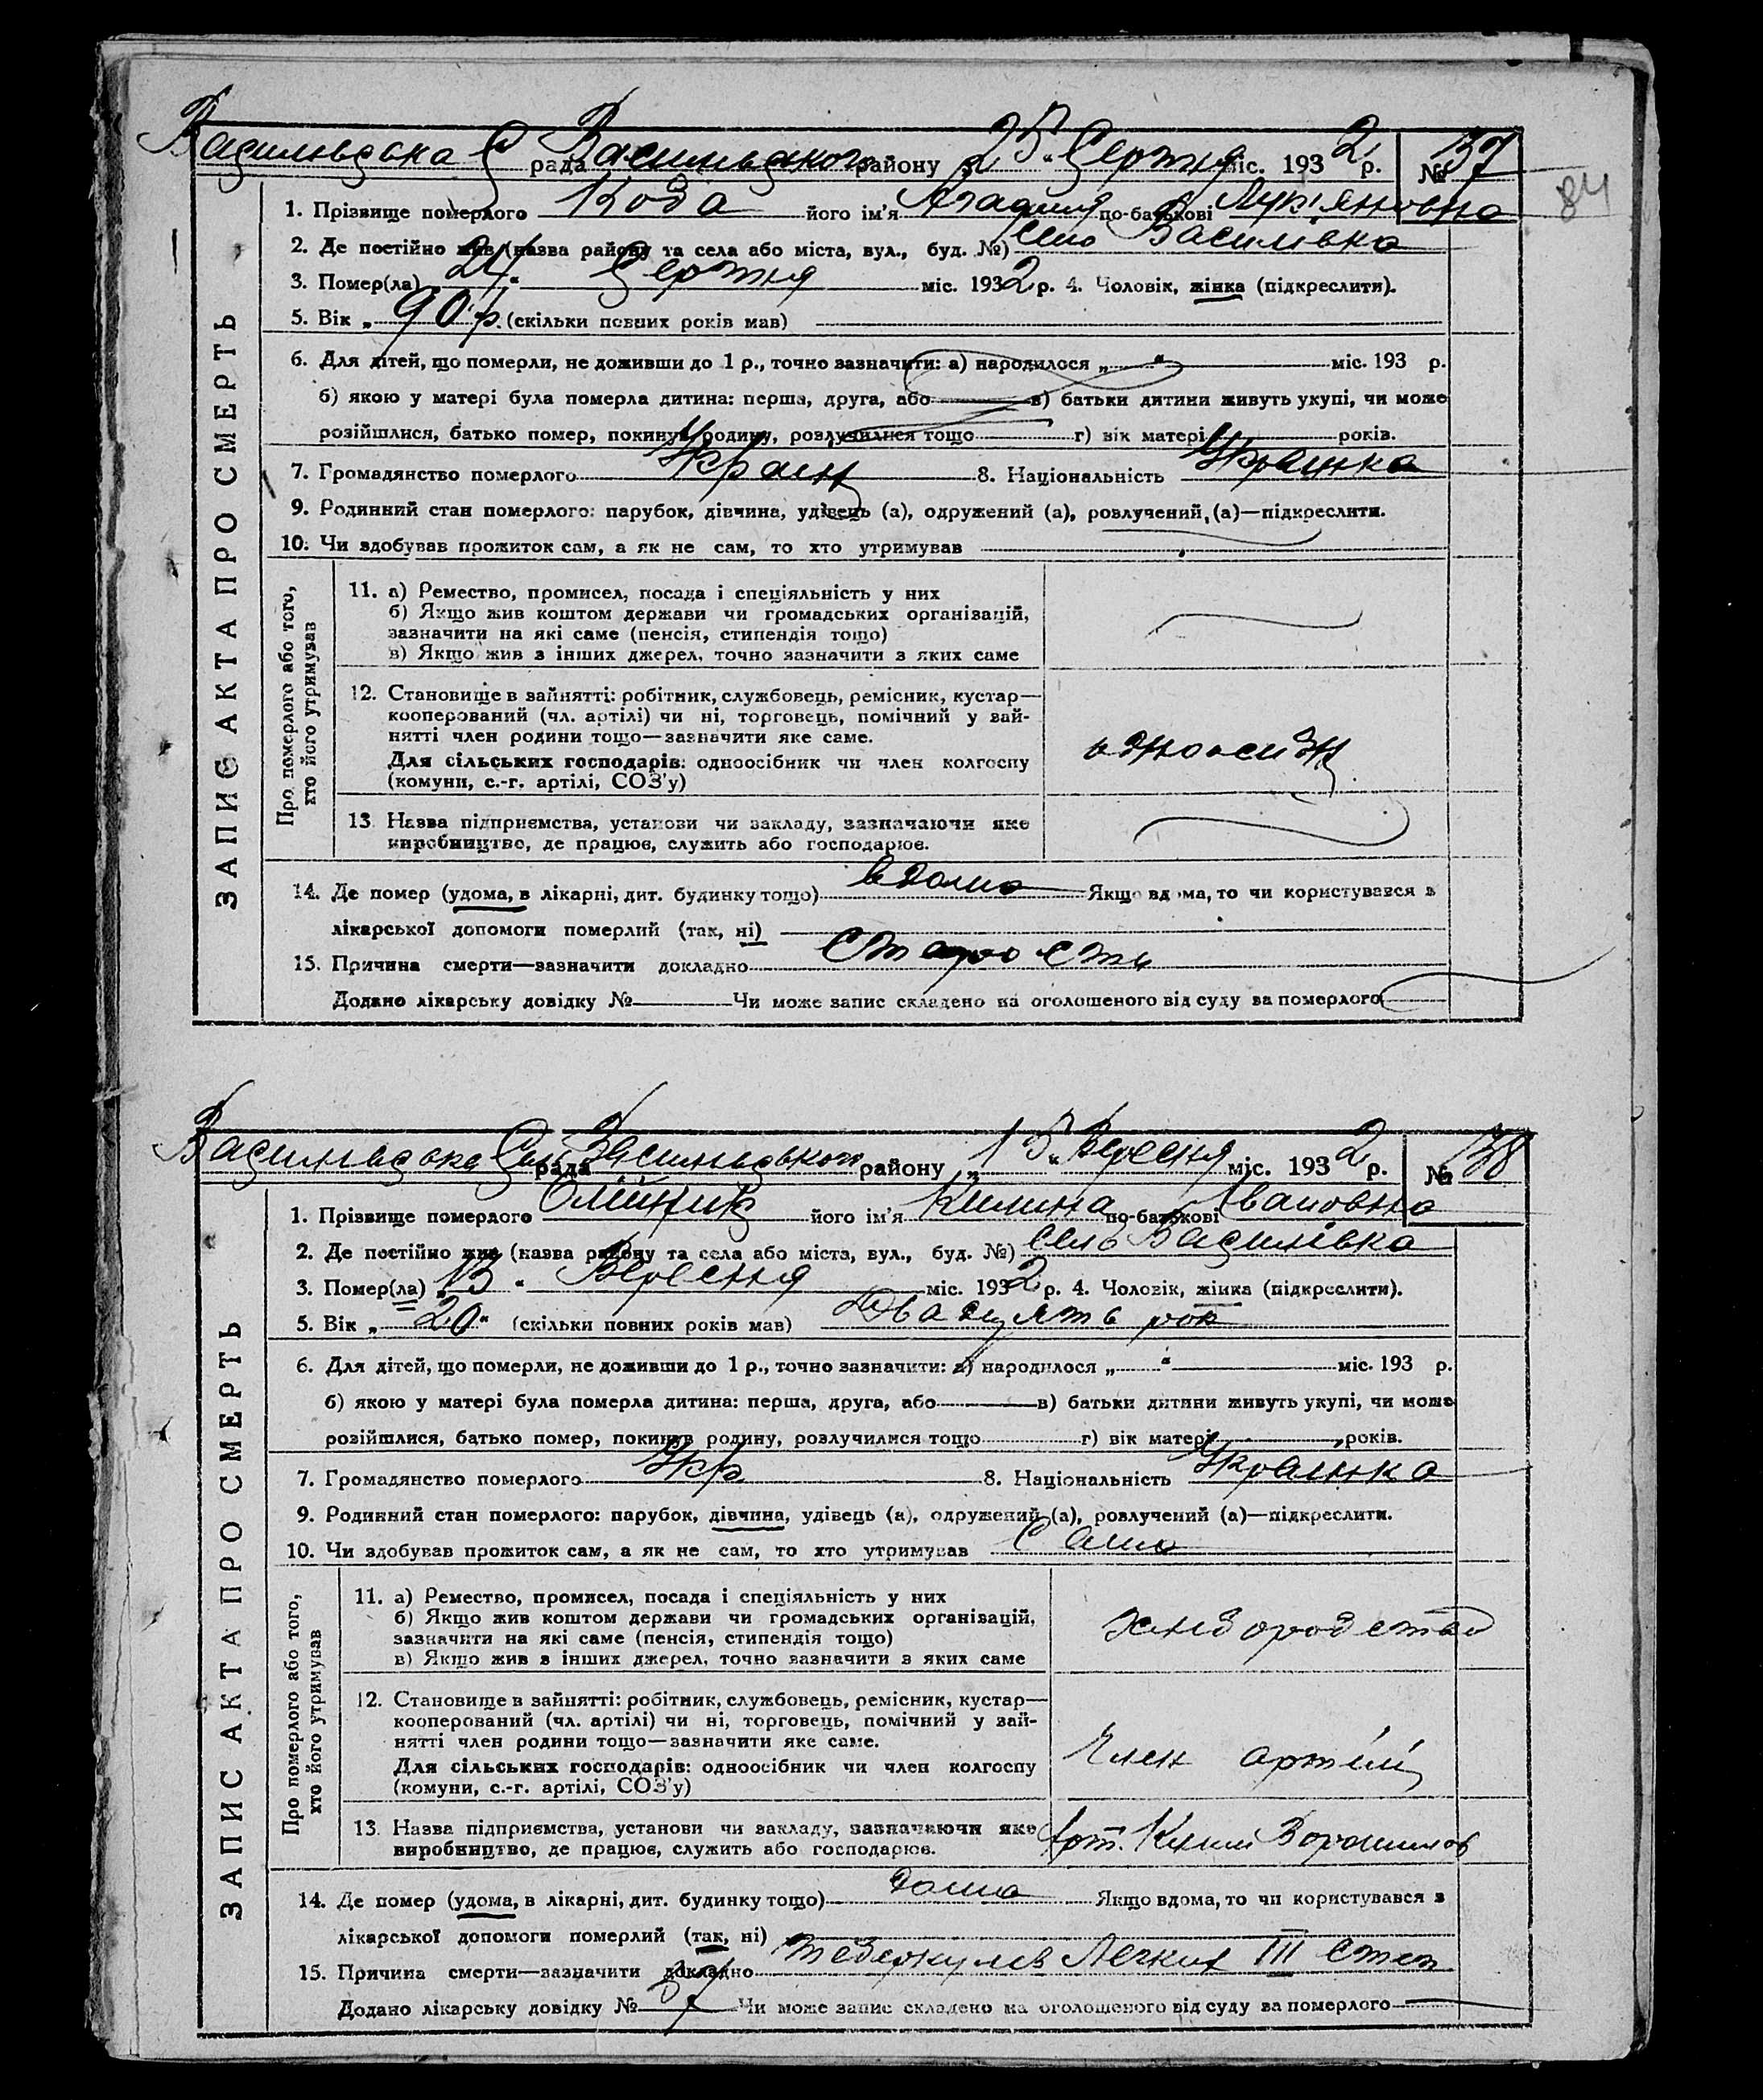 Василівська С рада Васильвського району „25“ Серпня міс. 1932 р. № 37
84
1. Прізвище померлого Коза його ім'я Агафия по-батькові Лук'яновна
2. Де постійно жив (назва району та села або міста, вул., буд. №) село Василівка
3. Помер(ла) „24“ Серпня міс. 1932 р. 4. Чоловік, жінка (підкреслити).
5. Вік „90 р. (скільки повних років мав)
6. Для дітей, що померли, не доживши до 1 р., точно зазначити: а) народилося „ “ міс. 193 р.
б) якою у матері була померла дитина: перша, друга, або в) батьки дитини живуть укупі, чи може
розійшлися, батько помер, покинув родину, розлучилися тощо г) вік матері років.
7. Громадянство померлого Украин 8. Національність Украинка
9. Родинний стан померлого: парубок, дівчина, удівець (а), одружений (а), розлучений, (а)—підкреслити.
10. Чи здобував прожиток сам, а як не сам, то хто утримував
ЗАПИС АКТА ПРО СМЕРТЬ
Про померлого або того,
хто його утримував
11. а) Ремество, промисел, посада і спеціяльність у них
б) Якщо жив коштом держави чи громадських організацій,
зазначити на які саме (пенсія, стипендія тощо)
в) Якщо жив з інших джерел, точно зазначити з яких саме
12. Становище в зайнятті: робітник, службовець, ремісник, кустар—
кооперований (чл. артілі) чи ні, торговець, помічний у зай-
нятті член родини тощо—зазначити яке саме.
Для сільських господарів: одноосібник чи член колгоспу
(комуни, с.-г. артілі, СОЗ'у)
13. Назва підприємства, установи чи закладу, зазначаючи яке
виробництво, де працює, служить або господарює.
14. Де помер (удома, в лікарні, дит. будинку тощо) вдома Якщо вдома, то чи користувався з
лікарської допомоги померлий (так, ні)
15. Причина смерти—зазначити докладно Старость
Додано лікарську довідку № Чи може запис складено на оголошеного від суду за померлого
Василівська Сел рада Васильвського району „15“ Вересня міс. 1932 р. № 38
1. Прізвище померлого Олійник його ім'я Килина по-батькові Івановна
2. Де постійно жив (назва району та села або міста, вул., буд. №) село Василівка
3. Помер(ла) „13“ Вересня міс. 1932 р. 4. Чоловік, жінка (підкреслити).
5. Вік „20“ (скільки повних років мав) Двадцять рок
6. Для дітей, що померли, не доживши до 1 р., точно зазначити: а) народилося „ “ міс. 193 р.
б) якою у матері була померла дитина: перша, друга, або в) батьки дитини живуть укупі, чи може
розійшлися, батько помер, покинув родину, розлучилися тощо г) вік матері років.
7. Громадянство померлого Укр 8. Національність Украинка
9. Родинний стан померлого: парубок, дівчина, удівець (а), одружений (а), розлучений (а)—підкреслити.
10. Чи здобував прожиток сам, а як не сам, то хто утримував Сама
ЗАПИС АКТА ПРО СМЕРТЬ
Про померлого або того,
хто його утримував
11. а) Ремество, промисел, посада і спеціяльність у них
б) Якщо жив коштом держави чи громадських організацій,
зазначити на які саме (пенсія, стипендія тощо)
в) Якщо жив з інших джерел, точно зазначити з яких саме
12. Становище в зайнятті: робітник, службовець, ремісник, кустар—
кооперований (чл. артілі) чи ні, торговець, помічний у зай-
нятті член родини тощо—зазначити яке саме.
Для сільських господарів: одноосібник чи член колгоспу
(комуни, с.-г. артілі, СОЗ'у)
Член артілі
13. Назва підприємства, установи чи закладу, зазначаючи яке
виробництво, де працює, служить або господарює.
Арт. Клим Ворошилов
14. Де помер (удома, в лікарні, дит. будинку тощо) дома Якщо вдома, то чи користувався з
лікарської допомоги померлий (так, ні)
15. Причина смерти—зазначити докладно Теберкулев Легких III степ
Додано лікарську довідку № 37 Чи може запис складено на оголошеного від суду за померлого